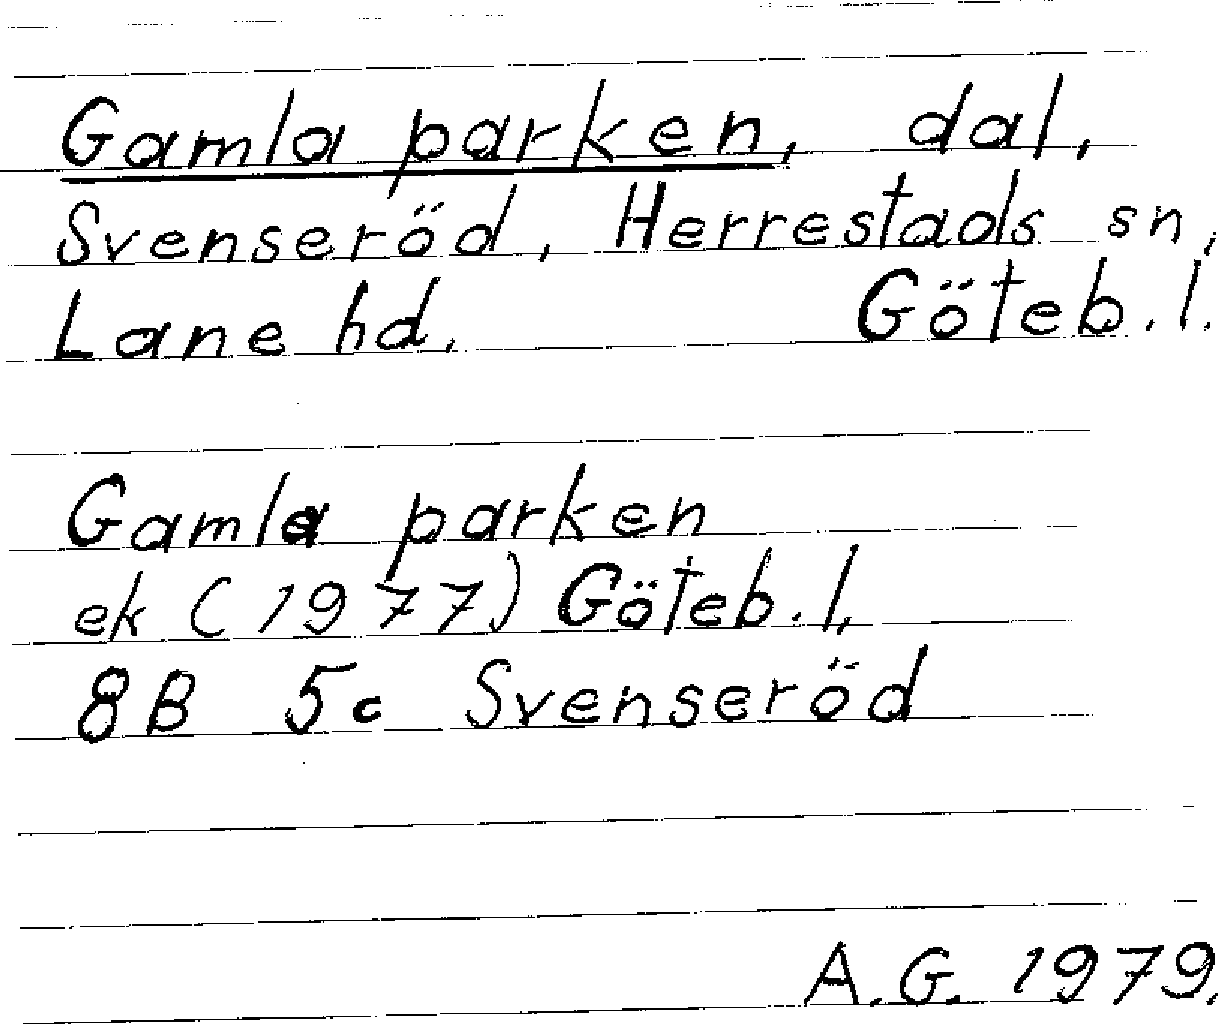 Gamla parken, dal,
Svenseröd, Herrestads sn,
Lane hd. Göteb. l.
Gamla parken
ek (1977) Göteb. l,
8B 5c Svenseröd
A.G. 1979.